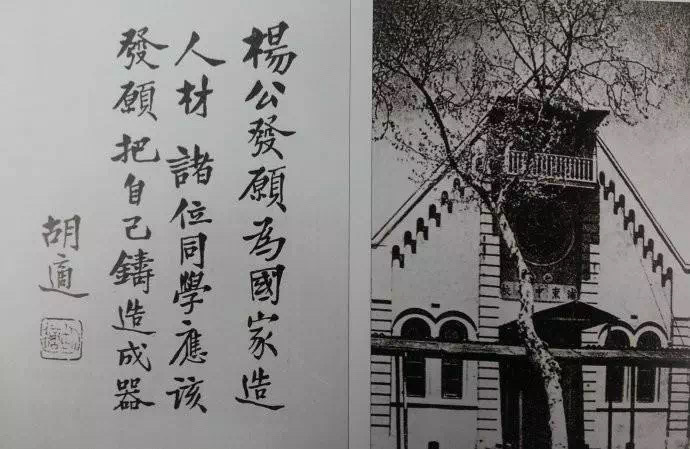 楊公發願為國家造
人材 諸位同學應該
發願把自己鑄造成器
胡適
浦東